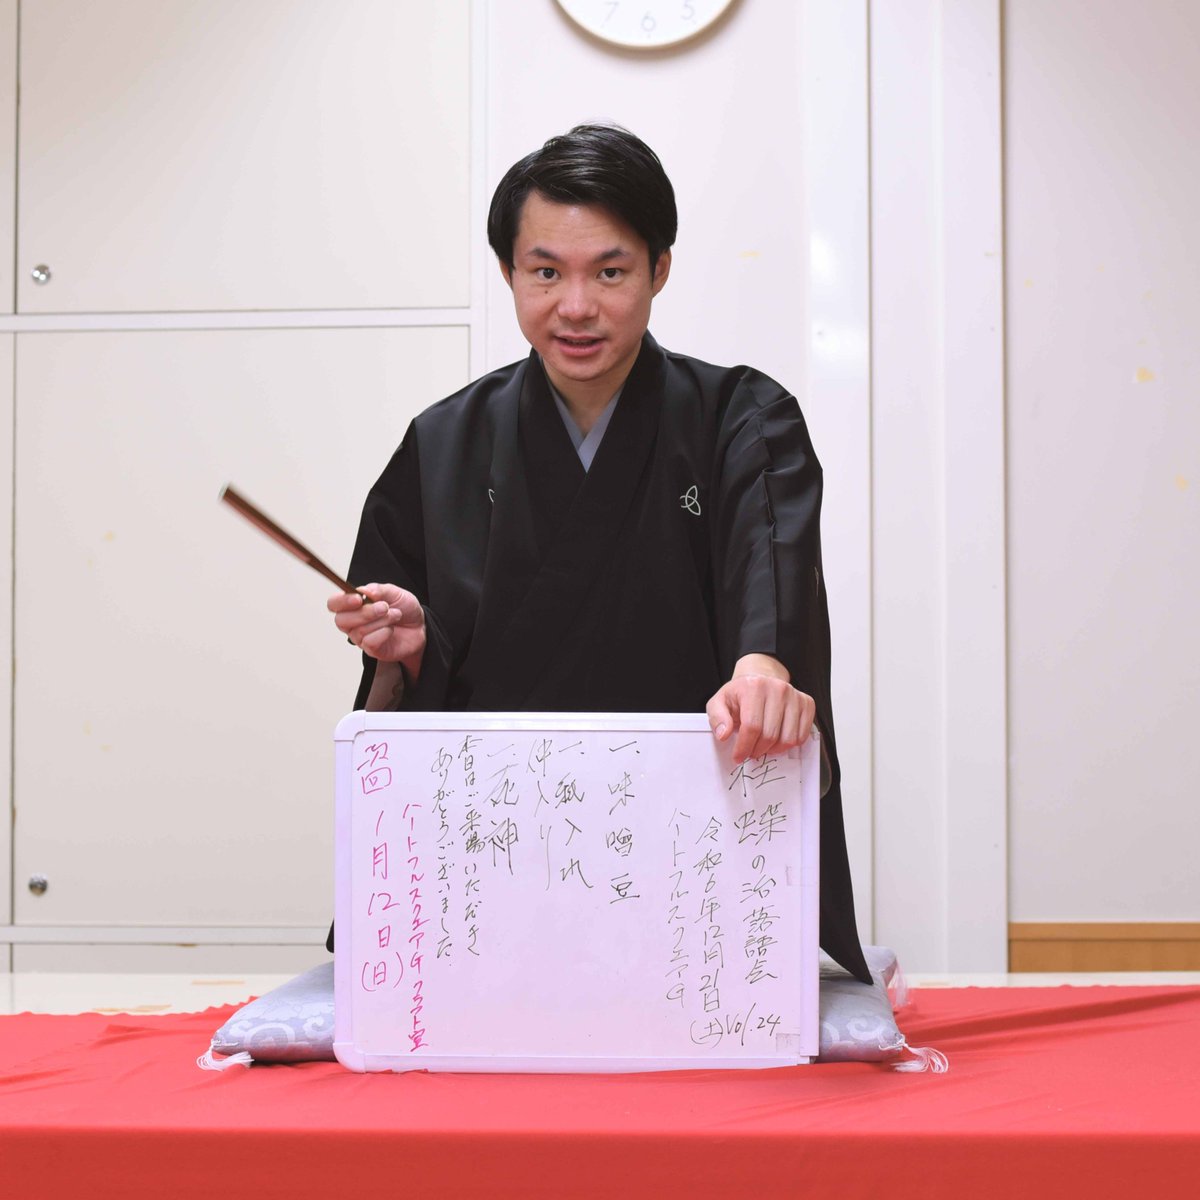 桂蝶の治落語会 Vol.24
令和6年12月21日(土)
ハートフルスクエアG
一、味噌豆
一、紙入れ
仲入り
一、死神
本日はご来場いただき
ありがとうございました。
次回 1月12日(日)
ハートフルスクエアG クラフト室
7 6 5